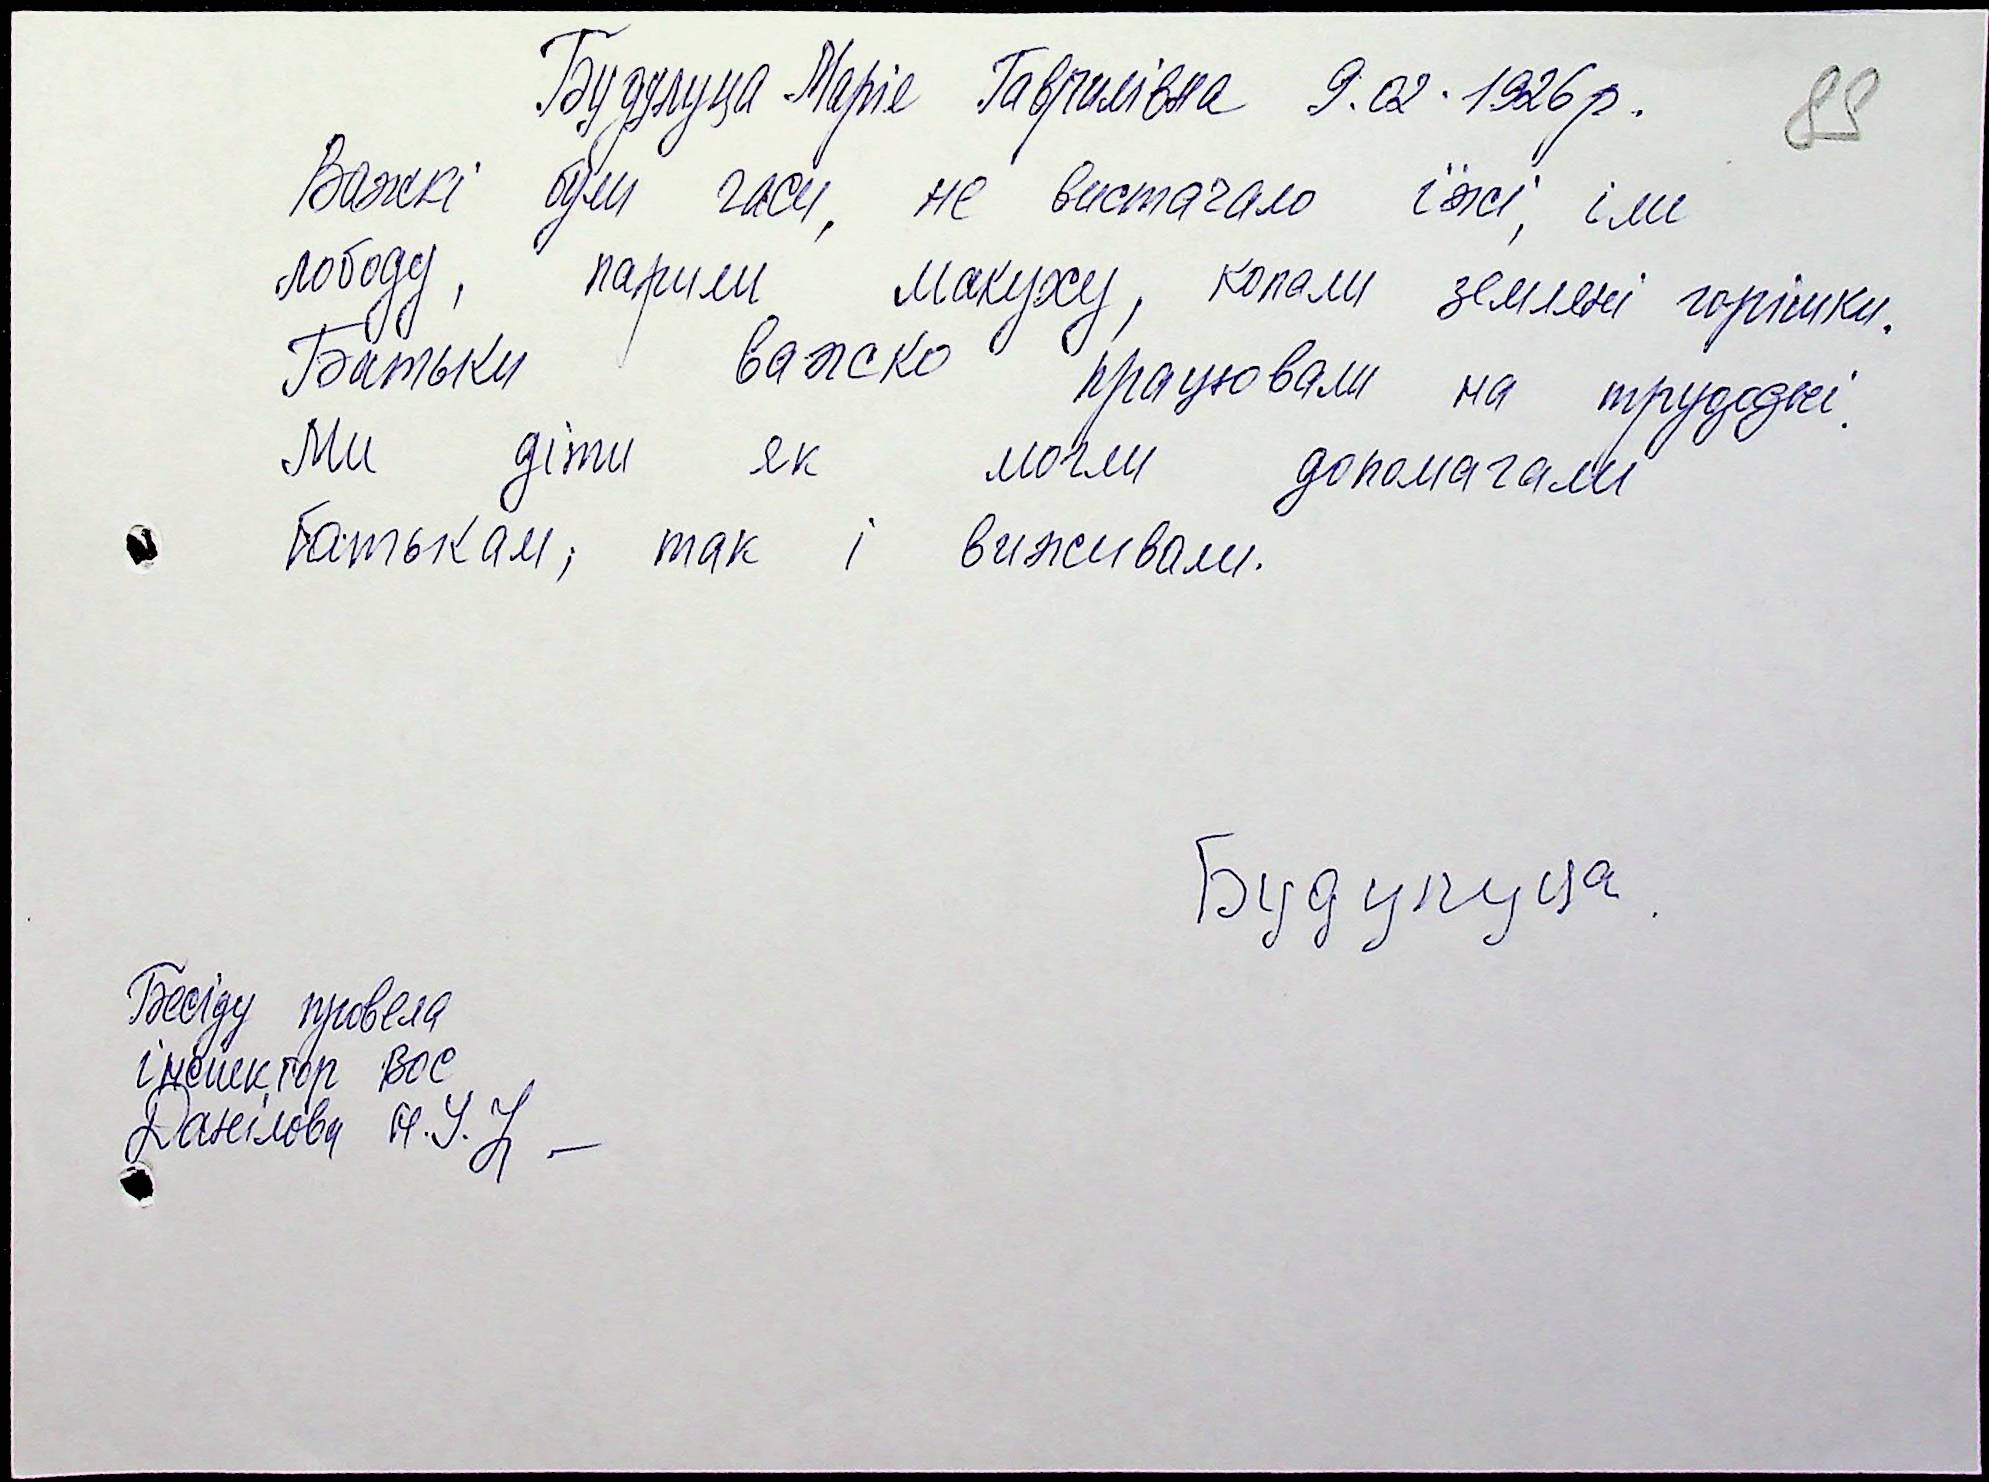 Будупуца Маріє Гаврилівна 9.02.1926 р.
88
Важкі були часи, не вистачало їжі, їли
лободу, парили макуху, копали земляні горішки.
Батьки важко працювали на трудодні.
Ми діти як могли допомагали
батькам, так і виживали.
Будупуца.
Бесіду провела
інспектор ВОС
Данілова Н.У.